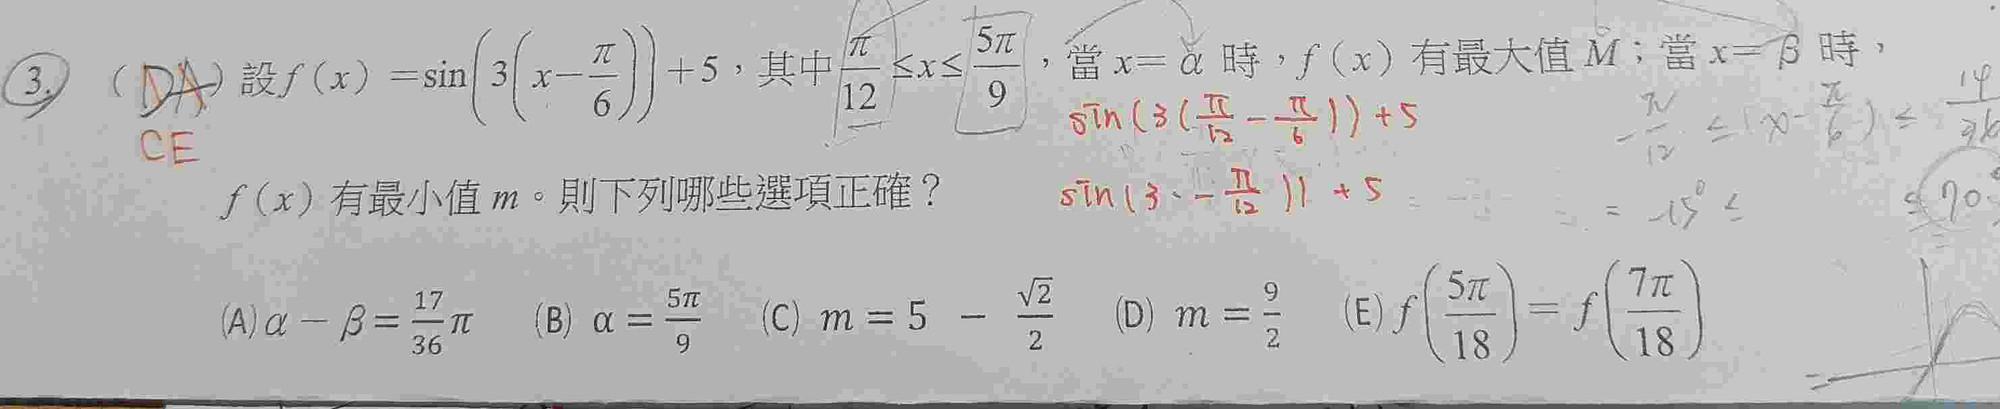 3. (DA) 設 f(x) = sin(3(x−π/6)) + 5，其中 π/12 ≤ x ≤ 5π/9，當 x = α 時，f(x) 有最大值 M；當 x = β 時，
CE
sin(3(π/12 − π/6)) + 5
−π/12 ≤ (x − π/6) ≤
f(x) 有最小值 m。則下列哪些選項正確？
sin(3·−π/12)) + 5
= −15° ≤
≤ 70°
(A) α − β = 17/36 π (B) α = 5π/9 (C) m = 5 − √2/2 (D) m = 9/2 (E) f(5π/18) = f(7π/18)